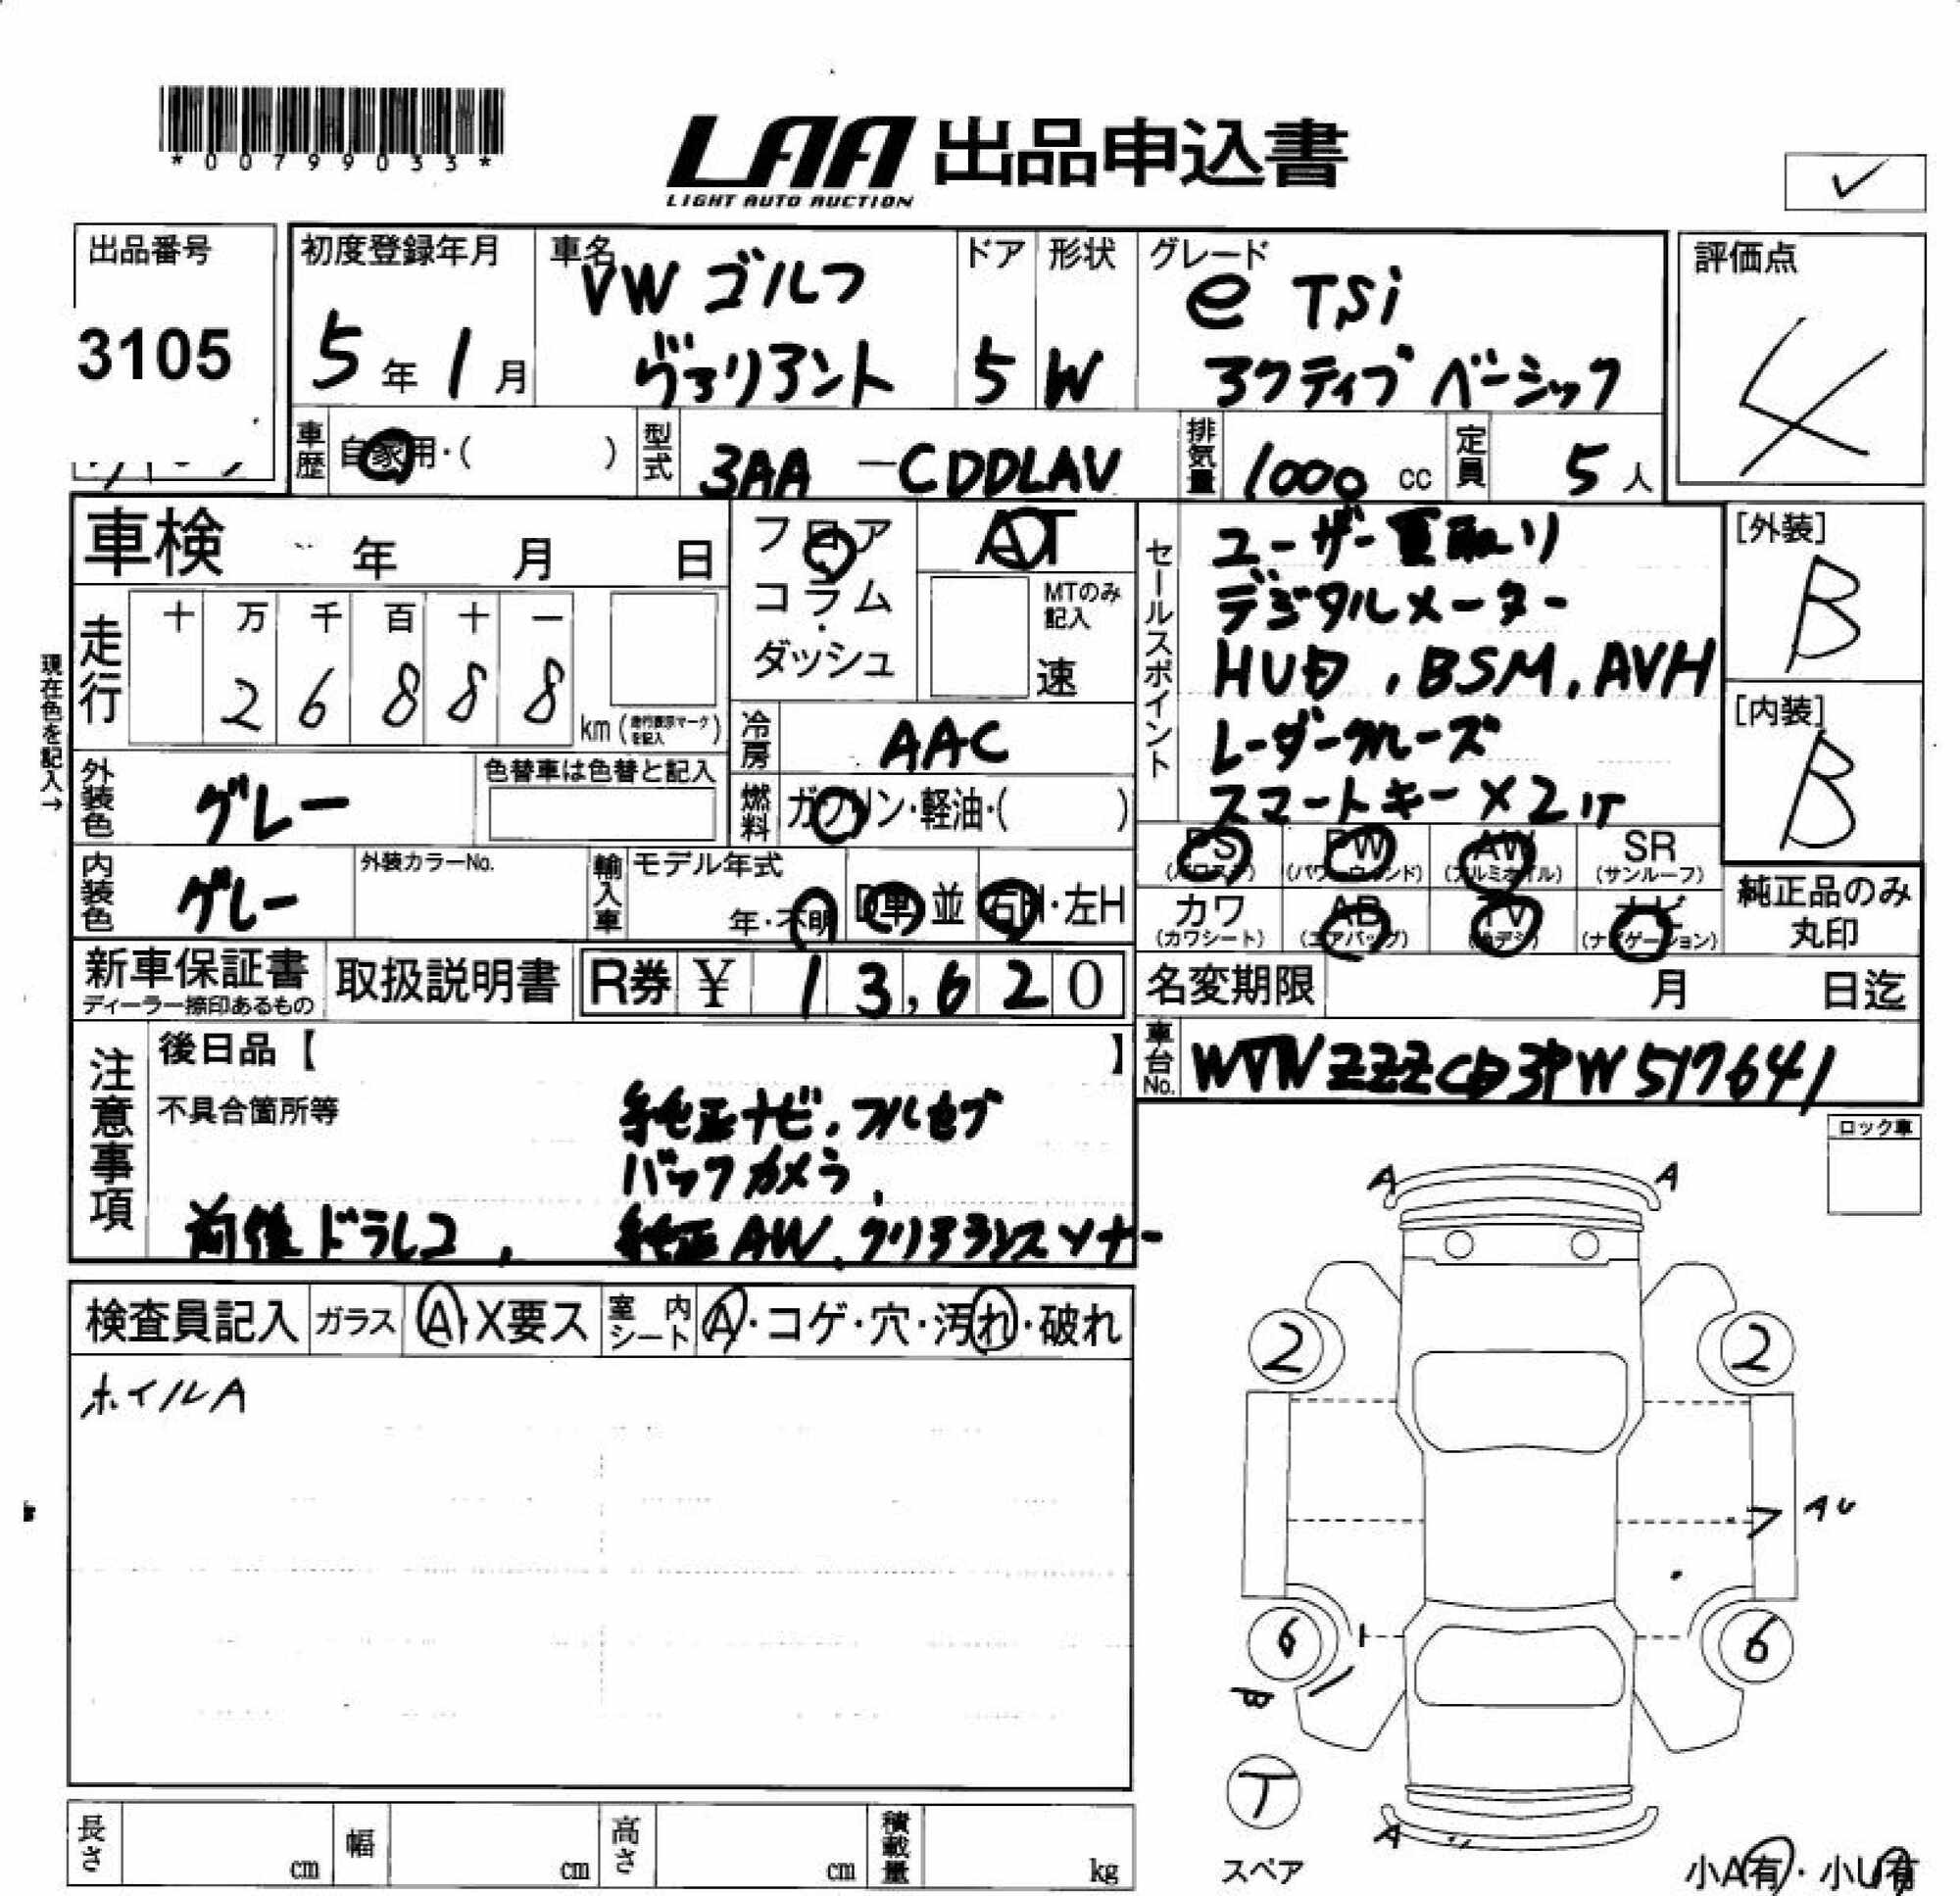 *00799033*
LAA 出品申込書
LIGHT AUTO AUCTION
✓
出品番号
3105
初度登録年月
5年1月
車名
VW ゴルフ
ヴァリアント
ドア
5
形状
W
グレード
e TSi
アクティブ ベーシック
評価点
4
車歴 自家用・( )
型式 3AA-CDDLAV
排気量 1000 cc
定員 5人
車検 年 月 日
フロア
コラム
・
ダッシュ
AT
MTのみ記入
速
セールスポイント
ユーザー買取り
デジタルメーター
HUD, BSM, AVH
レーダークルーズ
スマートキー×2ケ
[外装]
B
[内装]
B
現在色を記入→
走行
十 万 千 百 十 一
2 6 8 8 8
km (走行表示マークを記入)
冷房 AAC
外装色 グレー
色替車は色替と記入
燃料 ガソリン・軽油・( )
内装色 グレー
外装カラーNo.
輸入車
モデル年式
年・不明
D車 並
右H・左H
PS (パワステ)
PW (パワーウィンド)
AW (アルミホイル)
SR (サンルーフ)
カワ (カワシート)
AB (エアバッグ)
TV (地デジ)
ナビ (ナビゲーション)
純正品のみ
丸印
新車保証書
ディーラー捺印あるもの
取扱説明書
R券 ¥ 13,620
名変期限 月 日迄
車台No.
注意事項
後日品【 】
不具合箇所等
純正ナビ、フルセグ
バックカメラ、
前後ドラレコ、 純正AW、クリアランスソナー
ロック車
検査員記入
ガラス A・X要ス
室内シート A・コゲ・穴・汚れ・破れ
ホイルA
A A
2 2
ア AU
6 6
B
T
スペア
A
小A有・小U有
長さ cm
幅 cm
高さ cm
積載量 kg